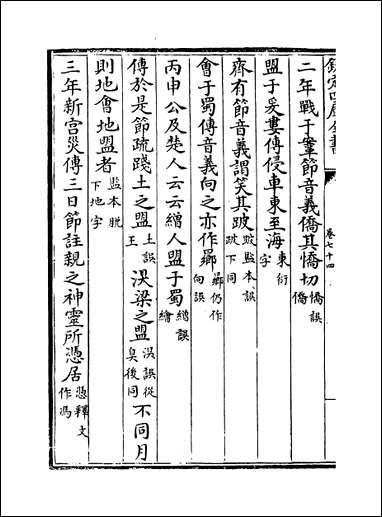 欽定四庫全書
卷七十四
二年戰于鞌節音義僑其憍切憍誤僑
盟于爰婁傳侵車東至海東衍字
齊有節音義謂笑其跛跛監本誤跛下同
會于蜀傳音義向之亦作鄉鄉仍作向誤
丙申公及楚人云云繒人盟于蜀繒誤繪
傳於是節疏踐土之盟土誤王湨梁之盟湨誤從臭後同不同月
則地會地盟者監本脫下地字
三年新宮災傳三日節註親之神靈所憑居憑釋文作馮